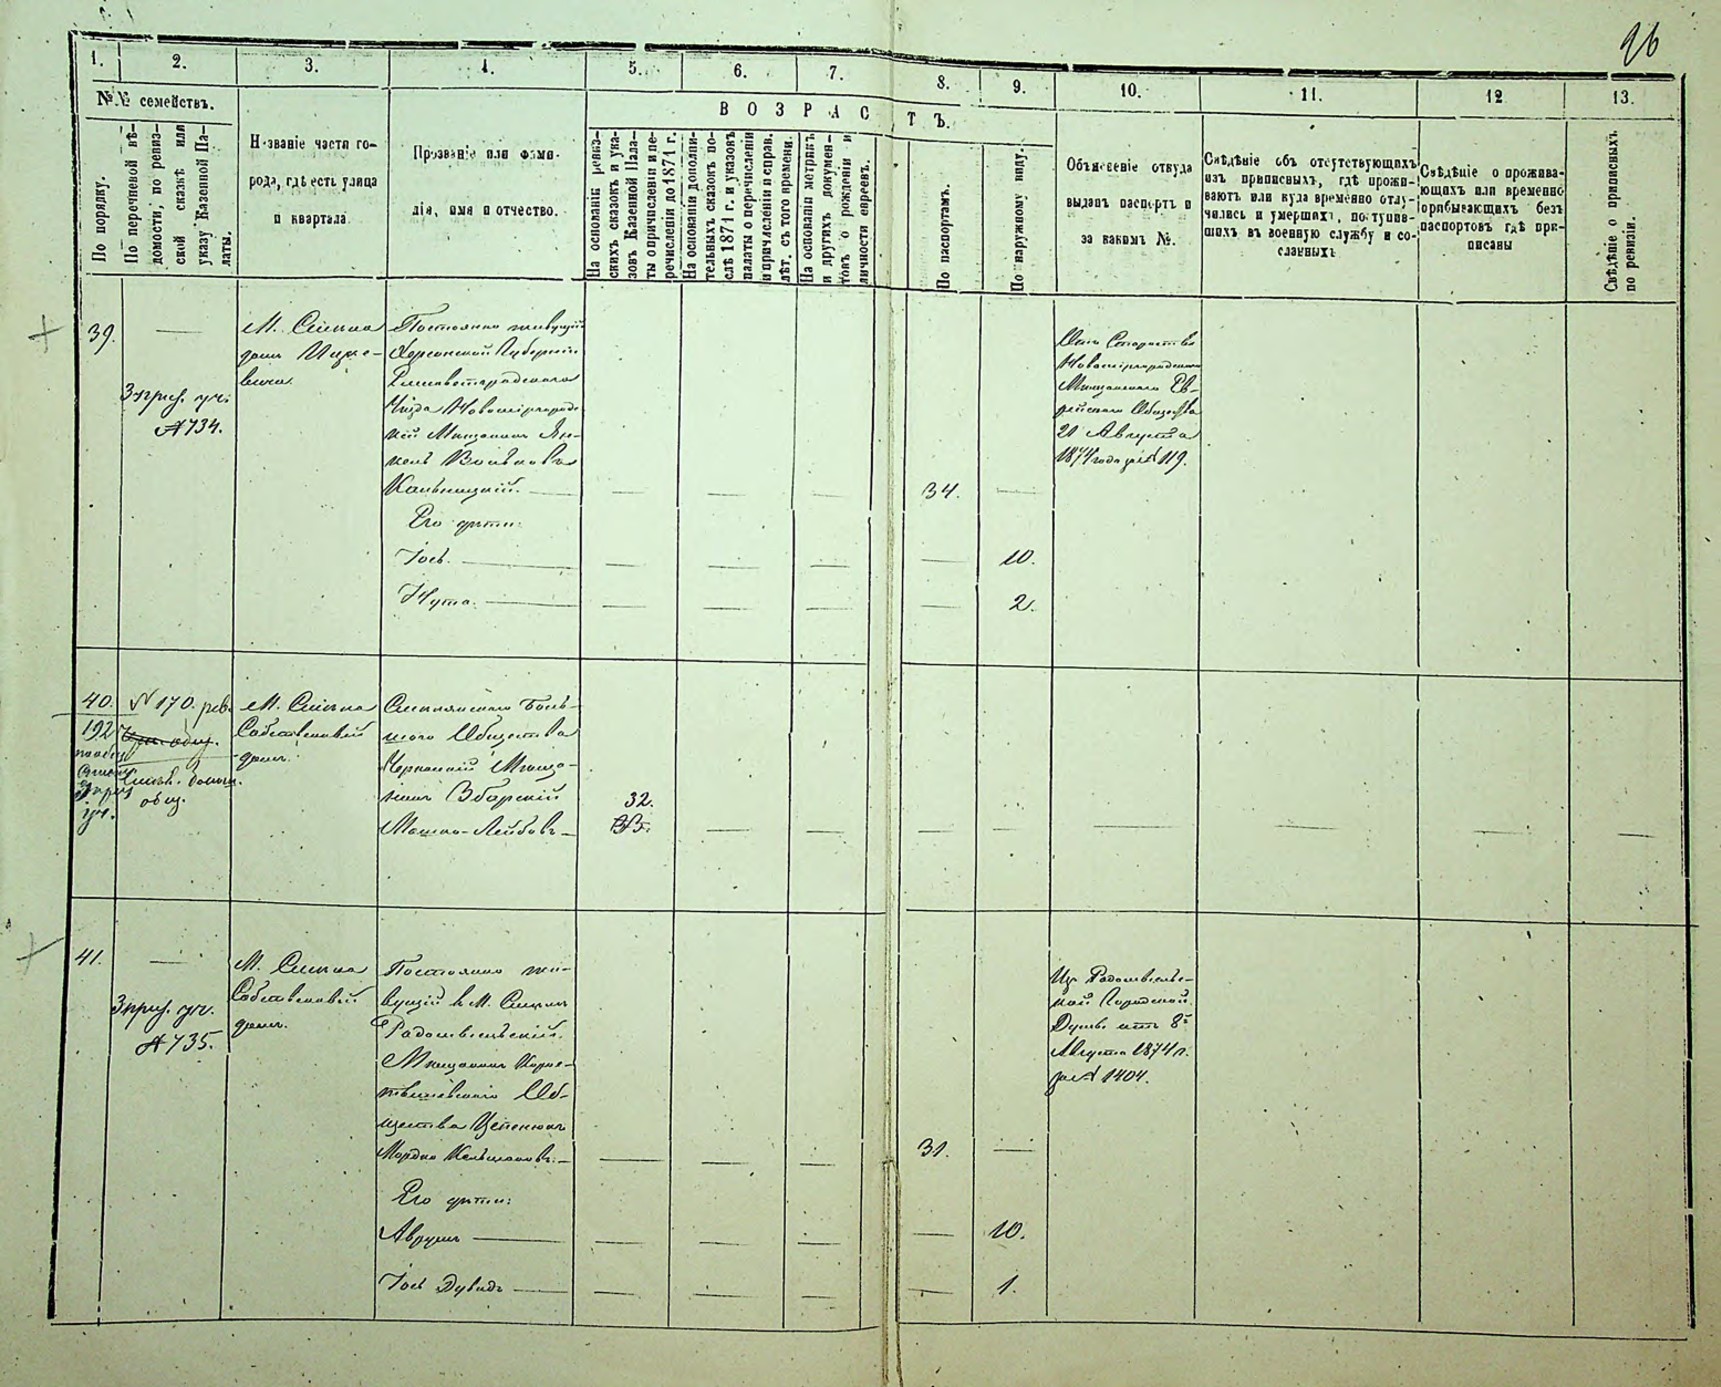 26
1. 2. 3. 4. 5. 6. 7. 8. 9. 10. 11. 12 13.
№№ семействъ.
По порядку.
По перечневой вѣ-
домости, по ревиз-
ской сказкѣ или
указу Казенной Па-
латы.
Названіе части го-
рода, гдѣ есть улица
и квартала
Прозваніе или фами-
лія, имя и отчество.
ВОЗРАСТЪ.
На основаніи ревиз-
скихъ сказокъ и ука-
зовъ Казенной Пала-
ты о причисленіи и пе-
речисленіи до 1871 г.
На основаніи дополни-
тельныхъ сказокъ по-
слѣ 1871 г. и указовъ
палаты о перечисленіи
и причисленіи справ.
лѣт. съ того времени.
На основаніи метрикъ
и другихъ докумен-
товъ о рожденіи и
личности евреевъ.
По паспортамъ.
По наружному виду.
Объясненіе откуда
выданъ паспортъ и
за какимъ №.
Свѣдѣніе объ отсутствующихъ
изъ приписныхъ, гдѣ прожи-
ваютъ или куда временно отлу-
чились и умершихъ, поступив-
шихъ въ военную службу и со-
сланныхъ
Свѣдѣніе о прожива-
ющихъ или временно
прибывающихъ безъ
паспортовъ гдѣ при-
писаны
Свѣдѣніе о приписныхъ
по ревизіи.
39.
3 приз. уч.
№ 734.
М. Смѣла
домъ
Постоянно живущій
Херсонской Губерніи
Елисаветградскаго
Уѣзда Новомиргород-
кій Мѣщанинъ Ян-
кель Вольковъ
Кальницкій. 34.
Его дѣти:
Іось. 10.
Нута. 2.
Отъ Старосты
Новомиргородскаго
Мѣщанскаго Ев-
рейскаго Общества
21 Августа
1874 года за № 119.
40.
192
№ 170. рев.
Смѣл. больш.
общ.
М. Смѣла
Собственный
домъ.
Смѣлянского Боль-
шого Общества
Черкаскій Мѣща-
нинъ Збарскій
Мошко-Лейбовъ
32.
41.
3 приз. уч.
№ 735.
М. Смѣла
Собственный
домъ.
Постоянно жи-
вущій в М. Смѣлѣ
Радомысльскій
Мѣщанинъ
Об-
щества
Мордко 31.
Его дѣти:
Аврумъ 10.
Іось Дувидъ 1.
Изъ Радомысльс-
кой Городской
Думы отъ 8го
Августа 1874 г.
за № 1404.